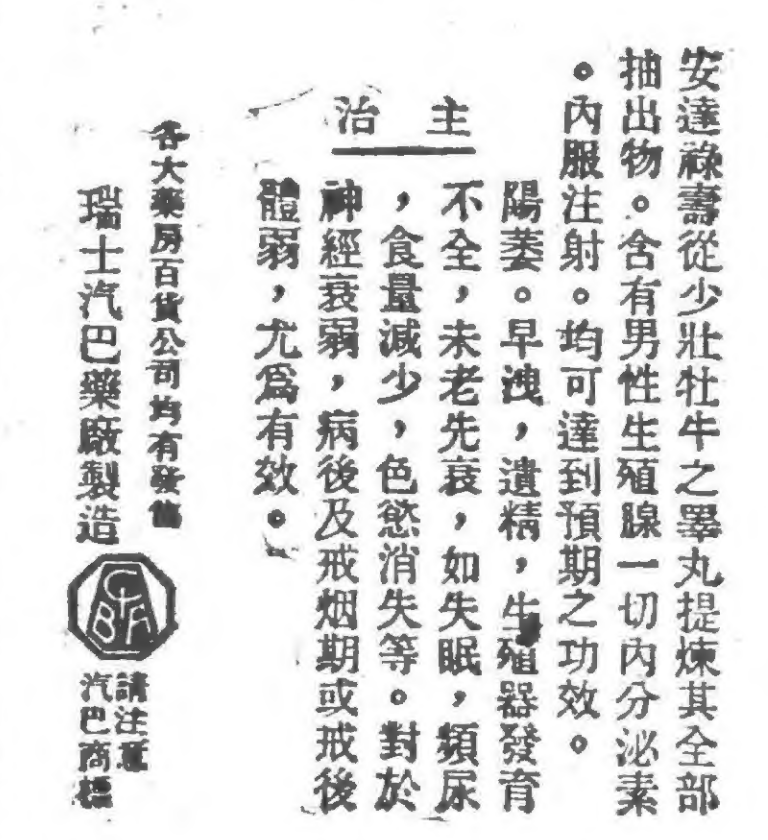 安達祿壽從少壯牡牛之睪丸提煉其全部
抽出物。含有男性生殖腺一切內分泌素
。內服注射。均可達到預期之功效。
主治
陽萎。早洩，遺精，生殖器發育
不全，未老先衰，如失眠，頻尿
，食量減少，色慾消失等。對於
神經衰弱，病後及戒烟期或戒後
體弱，尤爲有效。
各大藥房百貨公司均有發售
瑞士汽巴藥廠製造
CIBA
請注意
汽巴商標